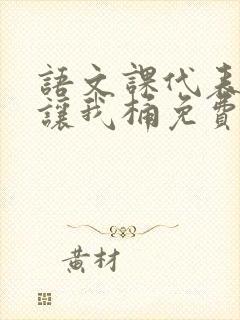 語文課代表
讓我桶免費
黃材